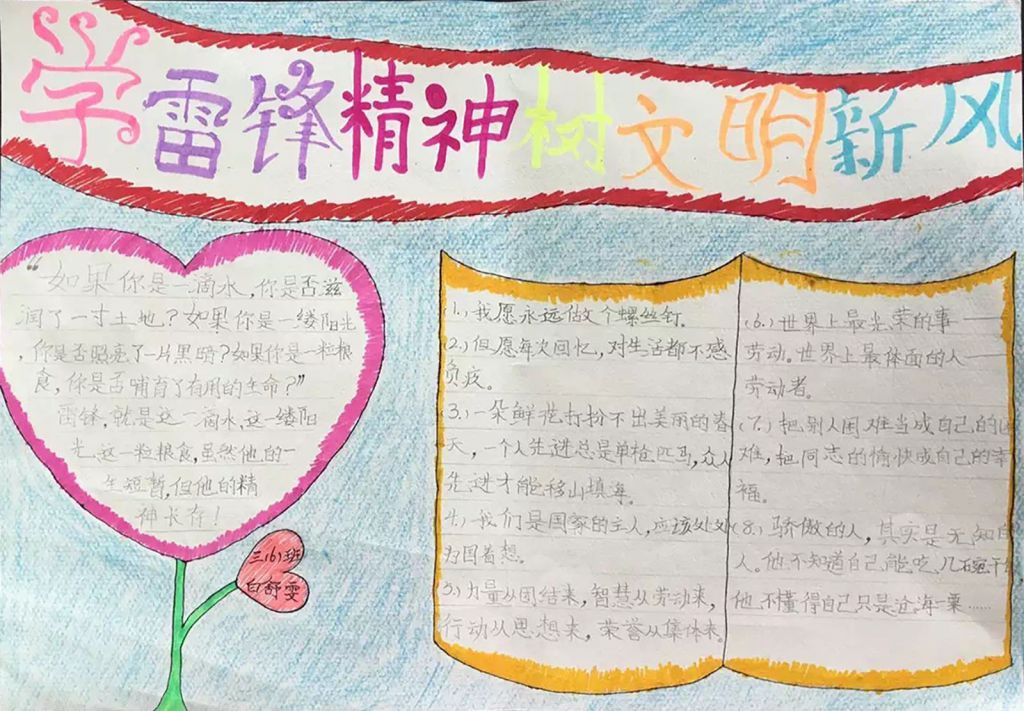 学雷锋精神树文明新风
“如果你是一滴水,你是否滋
润了一寸土地?如果你是一缕阳光
,你是否照亮了一片黑暗?如果你是一粒粮
食,你是否哺育了有用的生命?”
雷锋,就是这一滴水,这一缕阳
光,这一粒粮食,虽然他的一
生短暂,但他的精
神长存!
三(6)班
白舒雯
(1.)我愿永远做个螺丝钉。
(2.)但愿每次回忆,对生活都不感
负疚。
(3.)一朵鲜花打扮不出美丽的春
天,一个人先进总是单枪匹马,众人
先进才能移山填海。
(4.)我们是国家的主人,应该处处
为国着想。
(5.)力量从团结来,智慧从劳动来,
行动从思想来,荣誉从集体来。
(6.)世界上最光荣的事——
劳动。世界上最体面的人——
劳动者。
(7.)把别人困难当成自己的困
难,把同志的愉快成自己的幸
福。
(8.)骄傲的人,其实是无知的
人。他不知道自己能吃几碗干
他不懂得自己只是沧海一粟……